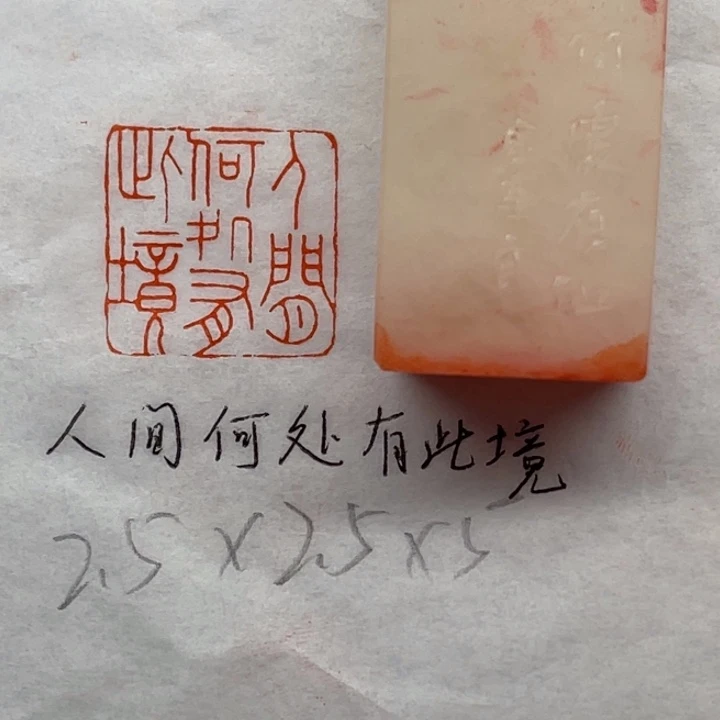 人間何處有此境
人间何处有此境
2.5×2.5×5